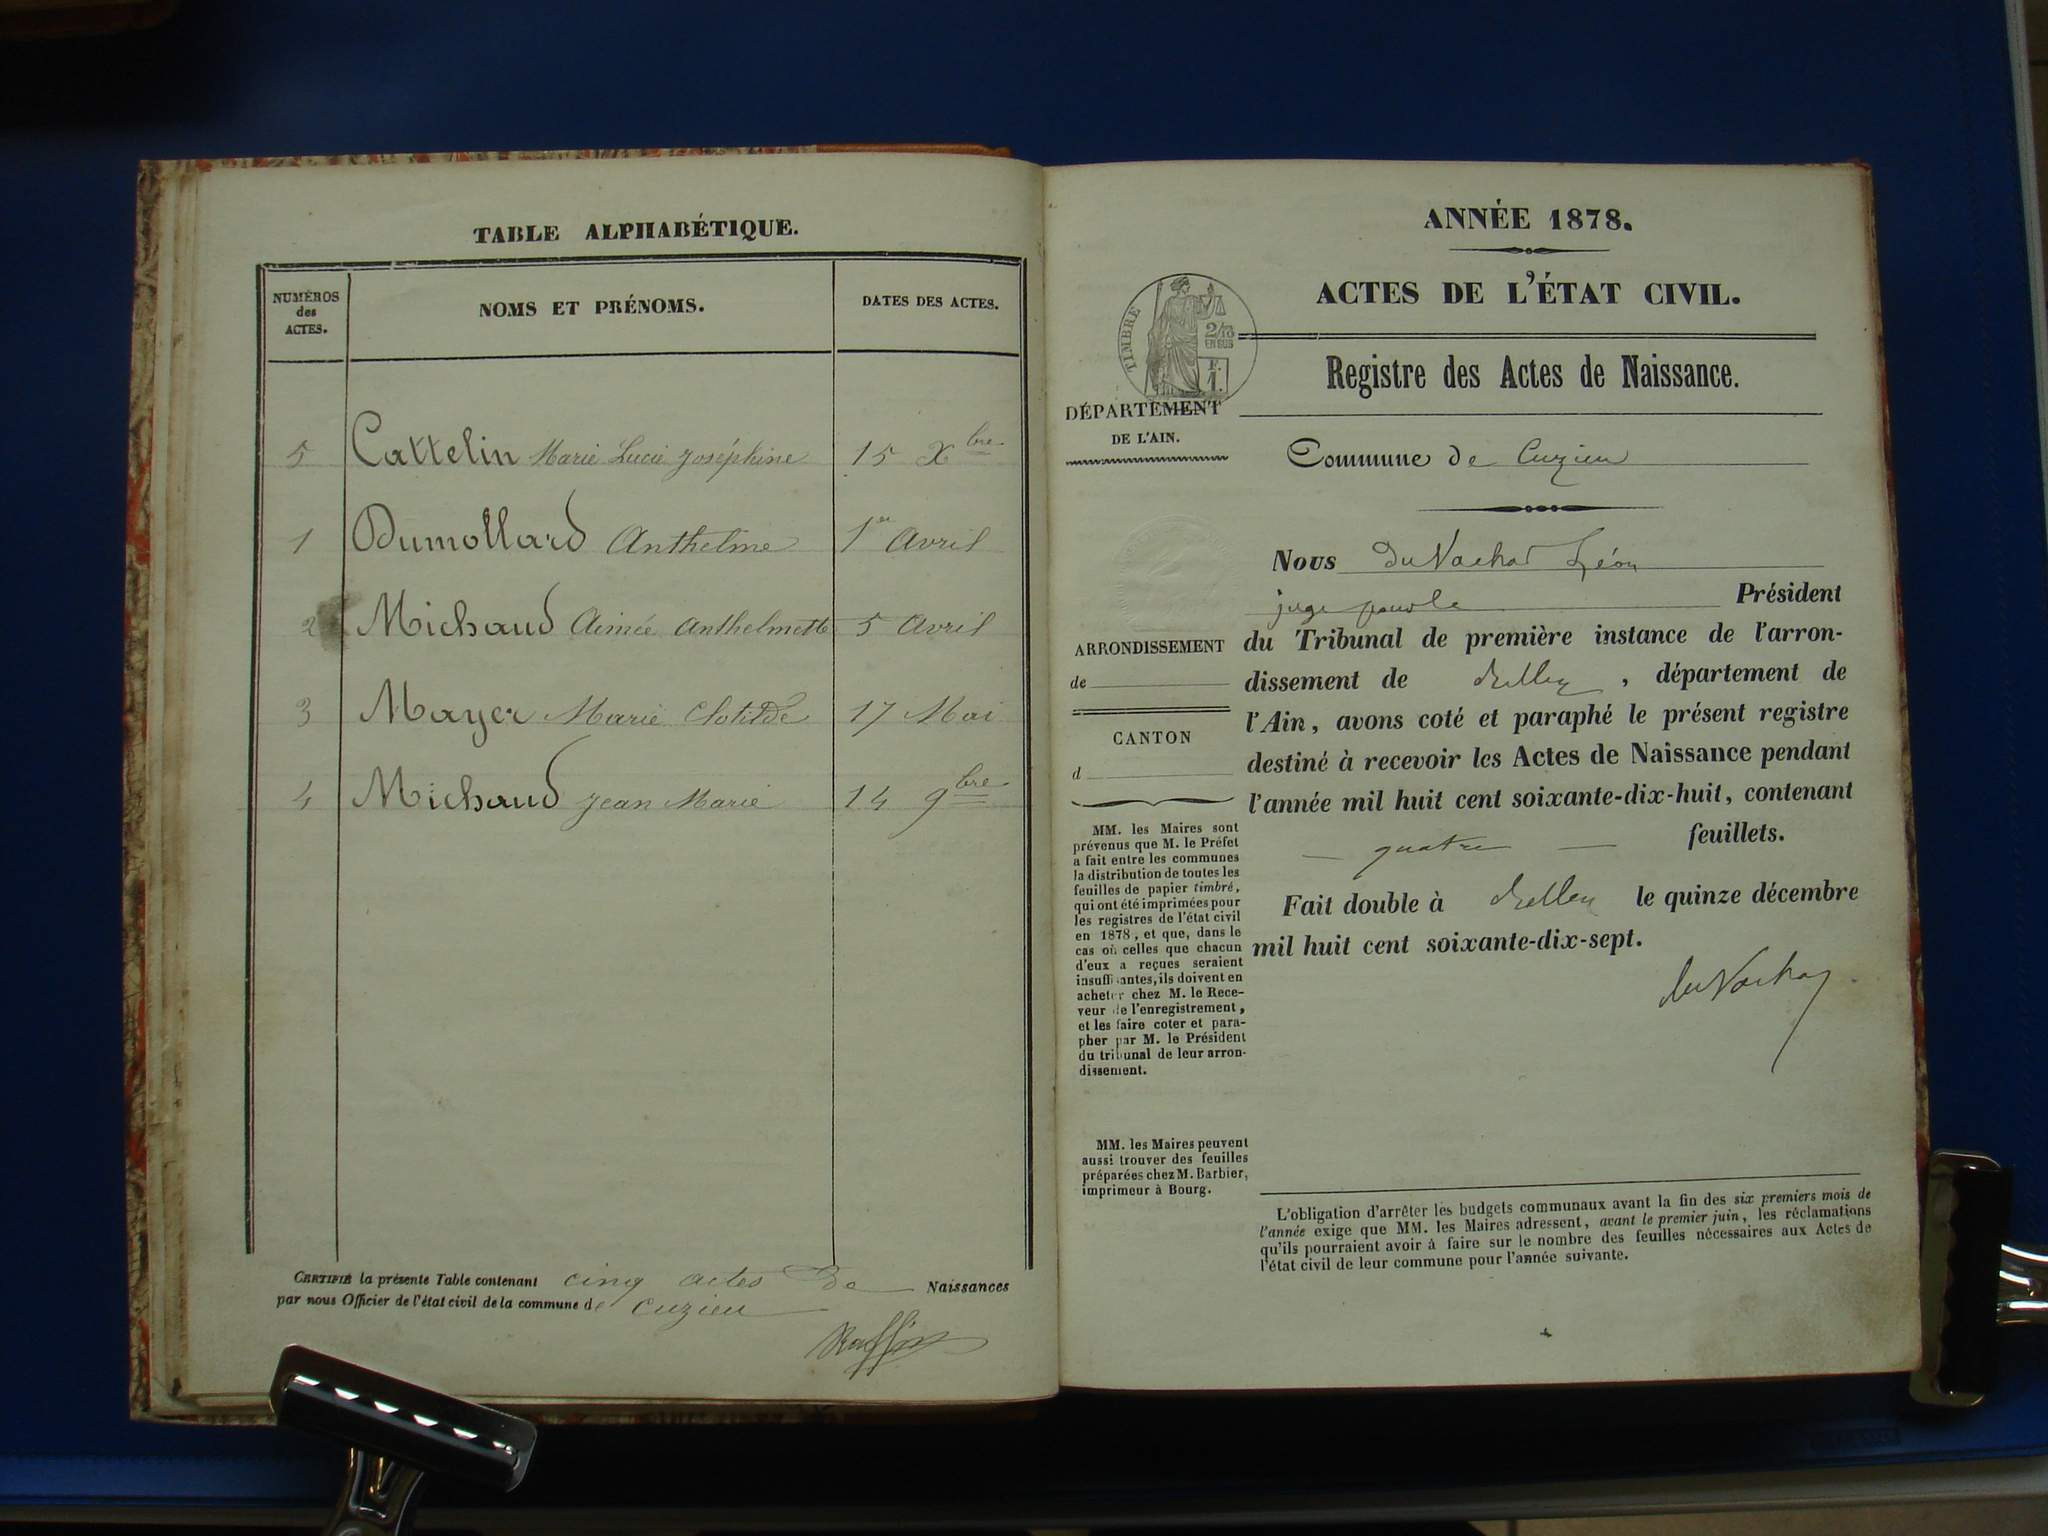 TABLE ALPHABÉTIQUE.
NUMÉROS
des
ACTES.
NOMS ET PRÉNOMS.
DATES DES ACTES.
5 Cattelin Marie Lucie Joséphine 15 Xbre
1 Dumollard Antheline 1er Avril
2 Michaud Aimée Anthelmette 5 Avril
3 Mayer Marie Clotilde 17 Mai
4 Michaud Jean Marie 14 9bre
CERTIFIÉ la présente Table contenant cinq actes de Naissances
par nous Officier de l'état civil de la commune de Cuzieu
Raffin
ANNÉE 1878.
ACTES DE L'ÉTAT CIVIL.
TIMBRE
2/10
EN SUS
F.
1.
Registre des Actes de Naissance.
DÉPARTEMENT
DE L'AIN.
Commune de Cuzieu
Nous du Nachat Léon
juge pour le Président
du Tribunal de première instance de l'arron-
dissement de Belley, département de
l'Ain, avons coté et paraphé le présent registre
destiné à recevoir les Actes de Naissance pendant
l'année mil huit cent soixante-dix-huit, contenant
— quatre — feuillets.
Fait double à Belley le quinze décembre
mil huit cent soixante-dix-sept.
du Nachat
ARRONDISSEMENT
de
CANTON
d
MM. les Maires sont
prévenus que M. le Préfet
a fait entre les communes
la distribution de toutes les
feuilles de papier timbré,
qui ont été imprimées pour
les registres de l'état civil
en 1878, et que, dans le
cas où celles que chacun
d'eux a reçues seraient
insuffisantes, ils doivent en
acheter chez M. le Rece-
veur de l'enregistrement,
et les faire coter et para-
pher par M. le Président
du tribunal de leur arron-
dissement.
MM. les Maires peuvent
aussi trouver des feuilles
préparées chez M. Barbier,
imprimeur à Bourg.
L'obligation d'arrêter les budgets communaux avant la fin des six premiers mois de
l'année exige que MM. les Maires adressent, avant le premier juin, les réclamations
qu'ils pourraient avoir à faire sur le nombre des feuilles nécessaires aux Actes de
l'état civil de leur commune pour l'année suivante.